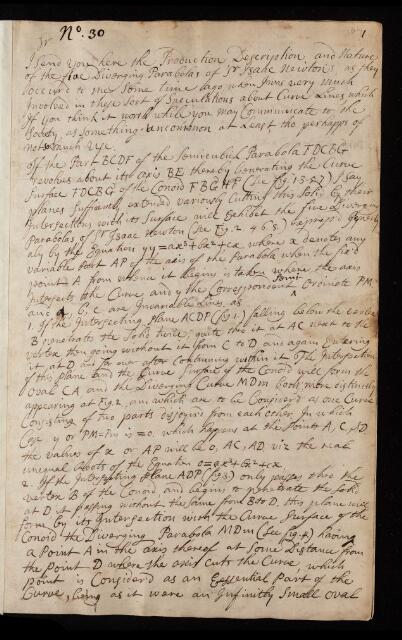 Sr No. 30
1
I send you here the Production Description and Nature
of the five Diverging Parabolas of Sr Isaac Newtons as they
occurr'd to me some time ago when I was very much
Involved in these sort of Speculations about Curve Lines which
If you think it worth while you may Communicate to the
Society as something uncommon at Least tho perhapps of
not much use.
If the Part BCDF of the Semicubical Parabola FDCBG
Revolves about its axis BE thereby Generating the Curve
Surface FDCBG of the Conoid FBG I say
planes sufficiently extended variously Cutting this Solid by their
Intersections with its Surface will Exhibit the five Diverging
Parabolas of Sr Isaac Newton (see Fig. 2 4 6 8) express'd
by the Equation yy = ax3+bx2+cx where x denotes any
variable Part AP of the axis of the Parabola when the fix'd
point A from whence it begins is taken where the axis
Point
Intersects the Curve and y the Correspondent Ordinate PM
and a, b, c are Invariable Lines as
1. If the Intersecting plane ACDP (fig 1) falling below the vertex
B penetrate the Solid twice, quits it at AC next to the
vertex then going without it from C to D and again Entering
it at D and for ever after Continuing within it the Intersection
of this plane and the Curve Surface of the Conoid will form the
Oval CA and the Diverging Curve MDm both more distinctly
appearing at Fig 2, and which are to be Consider'd as one Curve
Consisting of two parts disjoin'd from each other. In which
Case y or PM=Pm is = 0, which happens at the Points A, C, D
the values of x or AP will be 0, AC, AD viz the real
unequal Roots of the Equation 0=ax3+bx2+cx
2. If the Intersecting plane ADP (fig 3) only passes thro the
vertex B of the Conoid and begins to penetrate the Solid
at D it passing without the same from B to D, this plane will
form by its Intersection with the Curve Surface of the
Conoid the Diverging Parabola MDm (see fig. 4) having
a Point A in the axis thereof at Some Distance from
the Point D where the axis Cuts the Curve, which
Point is Consider'd as an Essential Part of the
Curve, being as it were an Infinitly Small oval